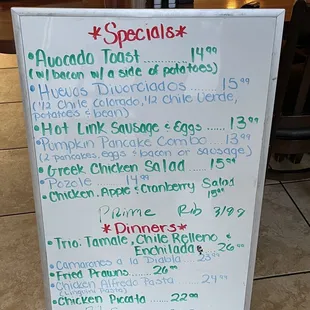 *Specials*
• Avocado Toast ...... 14.99
(w/ bacon w/ a side of potatoes)
• Huevos Divorciados ...... 15.99
(1/2 Chile Colorado, 1/2 Chile Verde,
potatoes & bean)
• Hot Link Sausage & Eggs ...... 13.99
• Pumpkin Pancake Combo 13.99
(2 pancakes, eggs & bacon or sausage)
• Greek Chicken Salad ...... 15.99
• Pozole ...... 14.99
• Chicken, Apple & Cranberry Salad
15.99
Prime Rib 31.99
*Dinners*
• Trio: Tamale, Chile Relleno
Enchilada 26.00
Camarones a la Diabla ... 23.99
• Fried Prawns ...... 26.00
Chicken Alfredo Pasta ...... 24.99
• Chicken Picata ...... 22.00